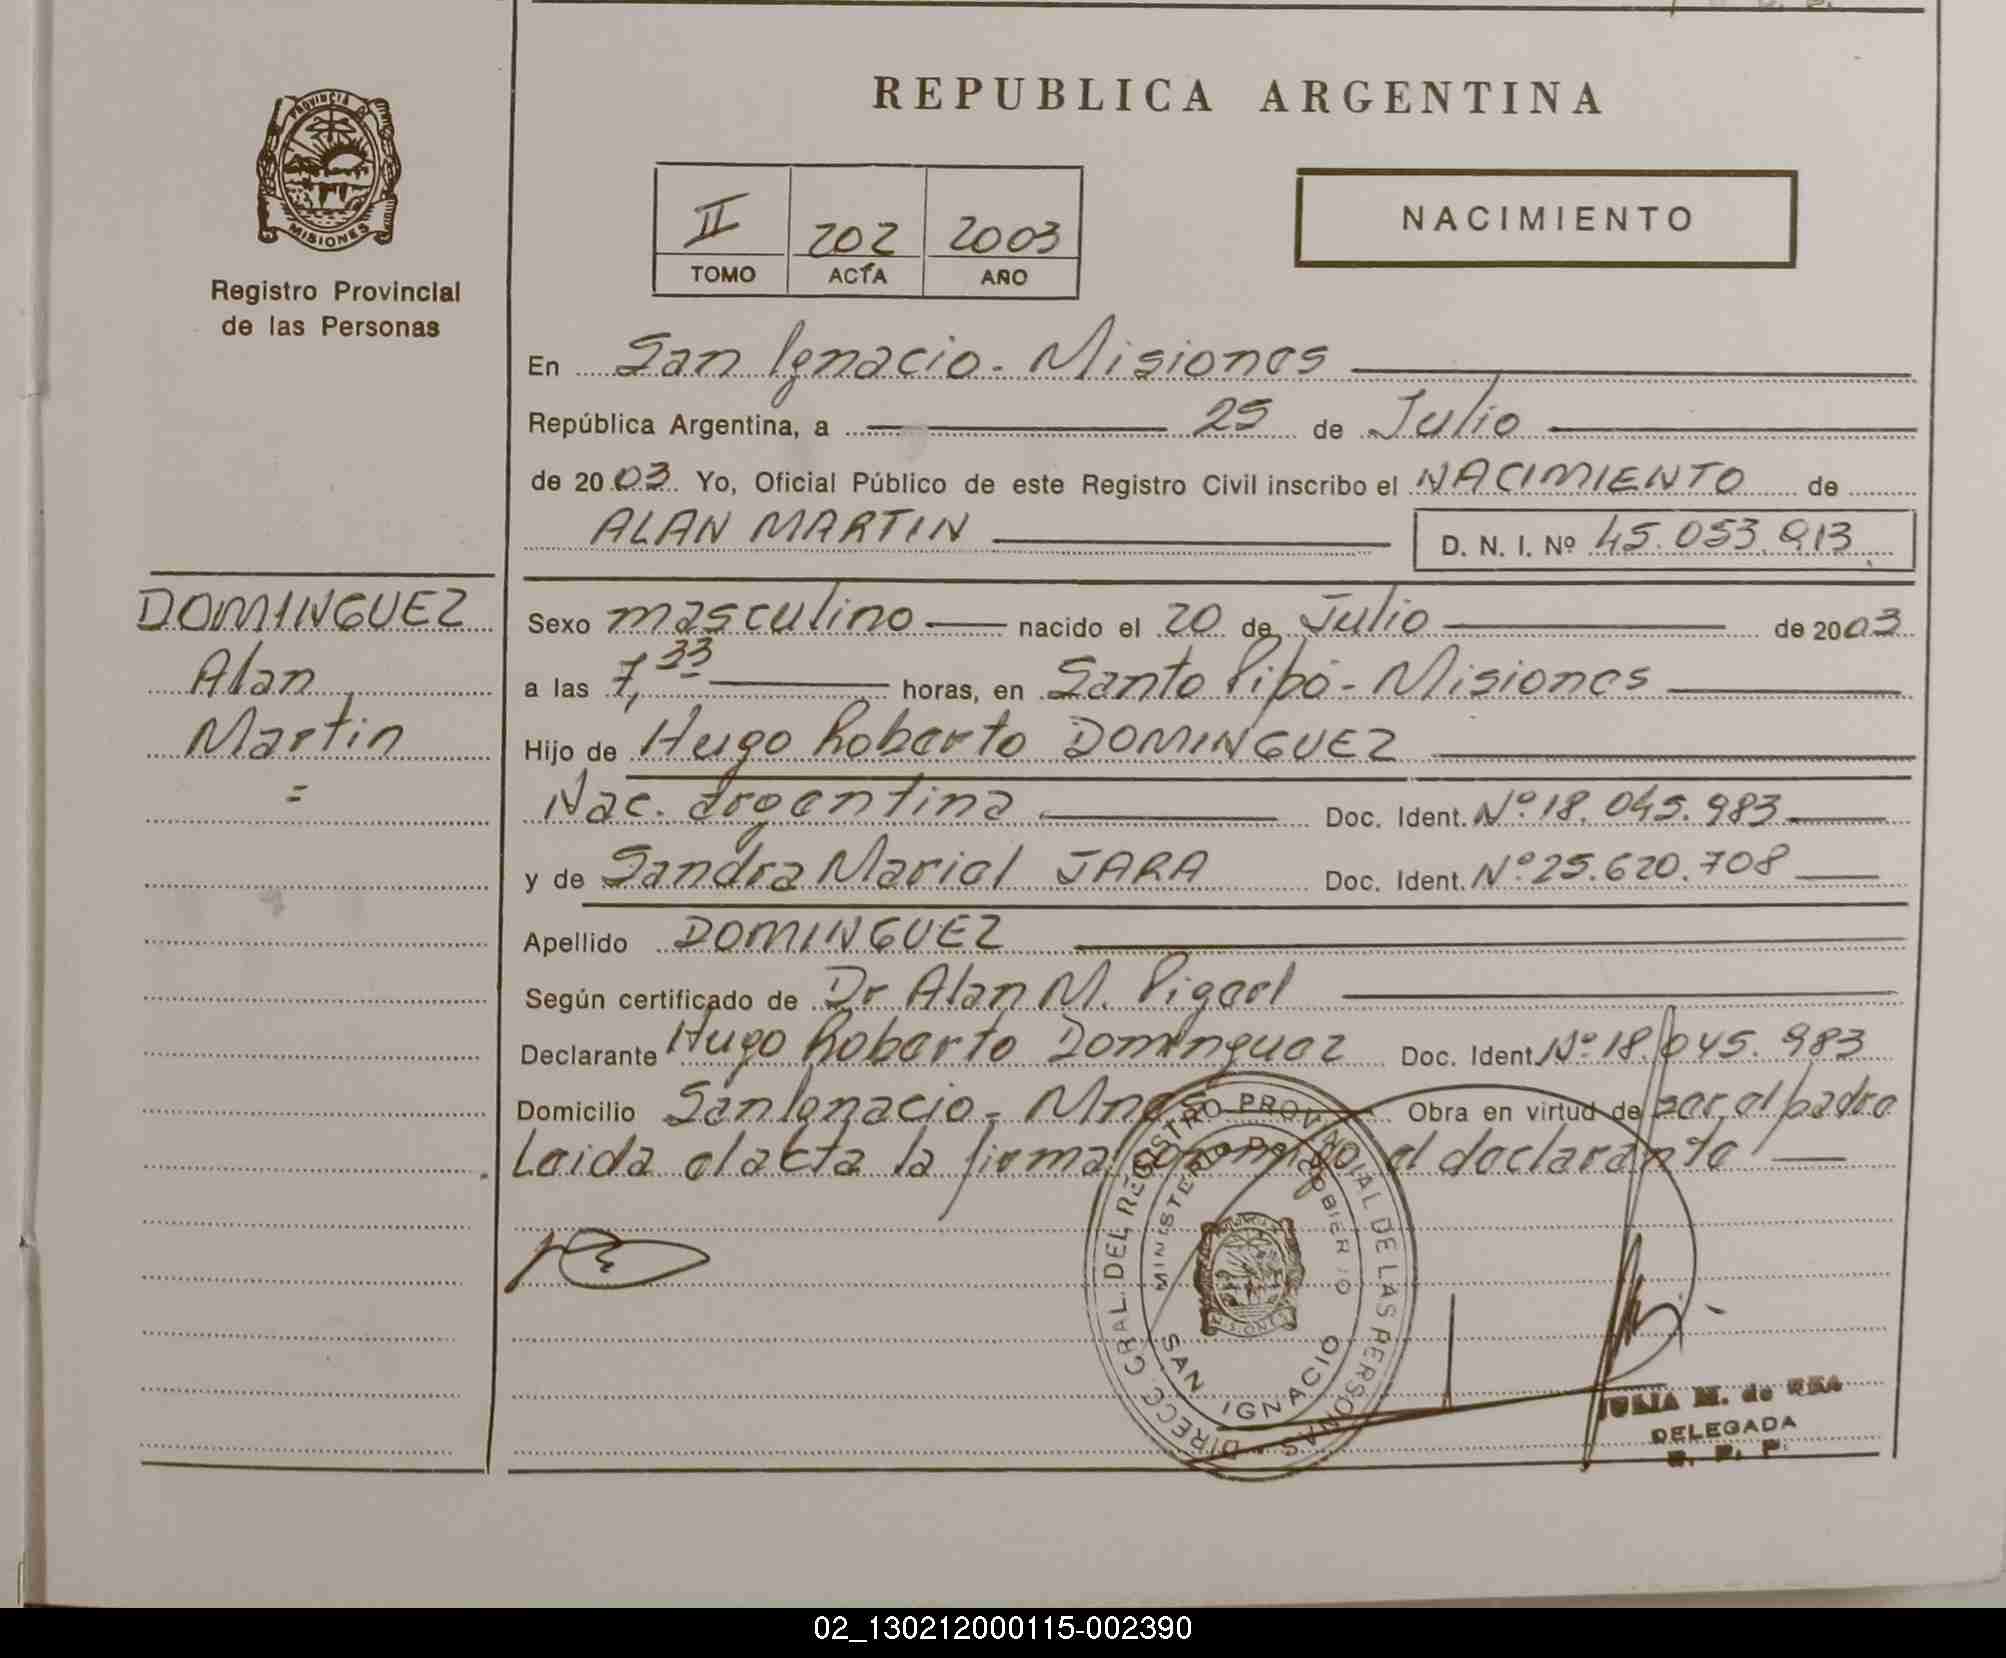 REPUBLICA ARGENTINA
PROVINCIA DE
MISIONES
Registro Provincial
de las Personas
II 202 2003
TOMO ACTA AÑO
NACIMIENTO
En San Ignacio - Misiones
República Argentina, a 25 de Julio
de 2003. Yo, Oficial Público de este Registro Civil inscribo el NACIMIENTO de
ALAN MARTIN
D. N. I. Nº 45.053.913
DOMINGUEZ
Alan
Martin
=
Sexo masculino nacido el 20 de Julio de 2003
a las 7,33 horas, en Santo Pipó - Misiones
Hijo de Hugo Roberto DOMINGUEZ
Nac. argentina Doc. Ident. Nº 18.045.983
y de Sandra Mariel JARA Doc. Ident. Nº 25.620.708
Apellido DOMINGUEZ
Según certificado de Dr Alan M.
Declarante Hugo Roberto Dominguez Doc. Ident. Nº 18.045.983
Domicilio San Ignacio - Mnes Obra en virtud de ser el padre
Leida el acta la firma conmigo el declarante
DIRECC. GRAL. DEL REGISTRO PROVINCIAL DE LAS PERSONAS
MINISTERIO DE GOBIERNO
MISIONES
SAN IGNACIO
JULIA M. de
DELEGADA
02_130212000115-002390